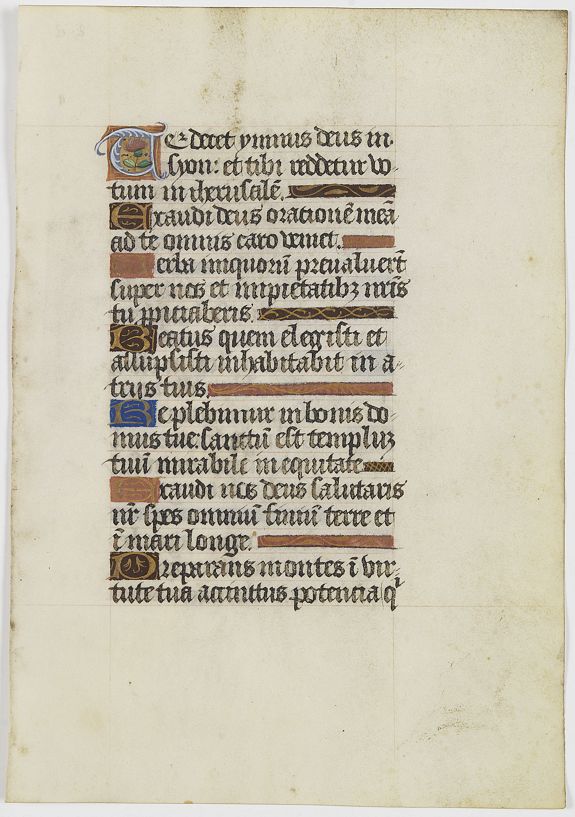 Te decet ymnus deus in
syon: et tibi reddetur vo-
tum in iherusalē.
Exaudi deus orationē meā
ad te omnis caro veniet.
Verba iniquorū preualuerūt
super nos et impietatibꝫ nr̄is
tu ꝓpiciaberis.
Beatus quem elegisti et
assūpsisti inhabitabit in a-
trijs tuis.
Replebimur in bonis do-
mus tue: sanctū est templuꝫ
tuū mirabile in equitate
Exaudi nos deus salutaris
nr̄ spes omniū finiū terre et
ī mari longe.
Preparans montes ī vir-
tute tua accinctus potencia q